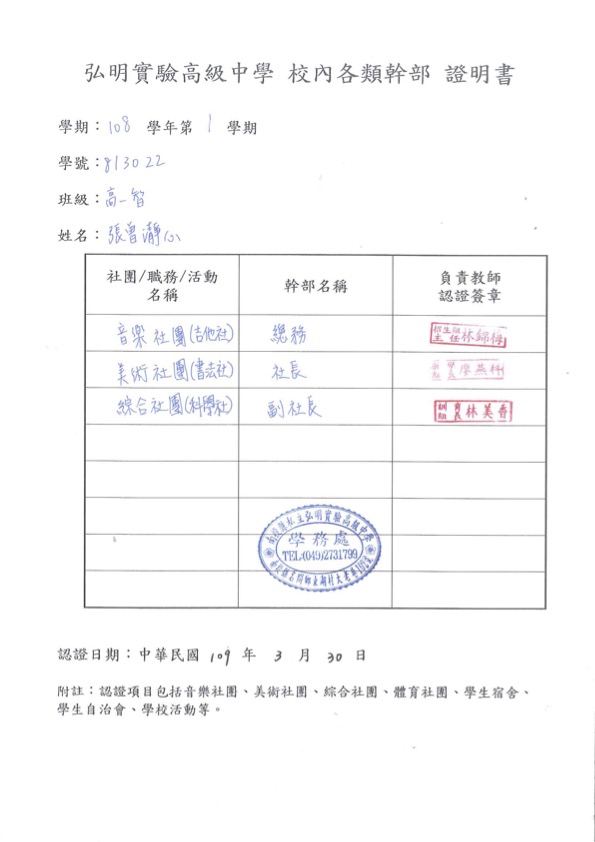 弘明實驗高級中學 校內各類幹部 證明書
學期：108 學年第 1 學期
學號：813022
班級：高一智
姓名：張曾瀞心
社團/職務/活動名稱 幹部名稱 負責教師認證簽章
音樂社團(吉他社) 總務 招生組主任林錦梅
美術社團(書法社) 社長 廖燕
綜合社團(科學社) 副社長 訓育組長林美香
南投縣私立弘明實驗高級中學
學務處
TEL:(049)2731799
認證日期：中華民國 109 年 3 月 30 日
附註：認證項目包括音樂社團、美術社團、綜合社團、體育社團、學生宿舍、
學生自治會、學校活動等。